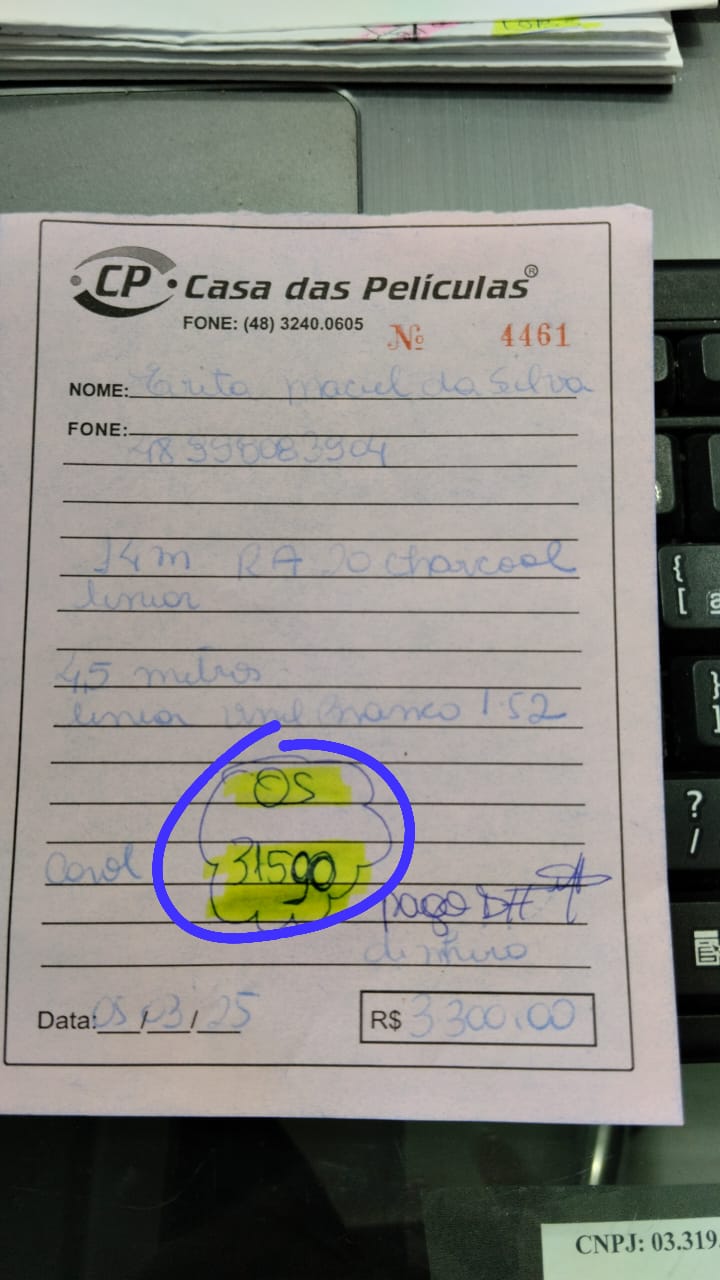 CP Casa das Películas®
FONE: (48) 3240.0605
Nº 4461
NOME: maciel da Silva
FONE:
48 998083904
14m RA 20 charcool
linear
4,5 metros
linear Branco 1.52
OS
31590
Carol
pago DH
dinheiro
Data: 05/03/25
R$ 3300,00
{
[
}
]
?
/
CNPJ: 03.319.